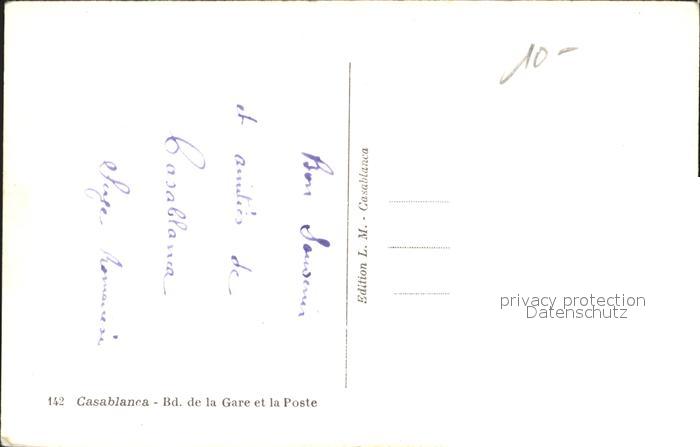 10-
Bon Souvenir
et amitiés de
Casablanca
Serge
Edition L. M. - Casablanca
privacy protection
Datenschutz
142 Casablanca - Bd. de la Gare et la Poste